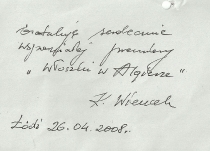 Gratuluję serdecznie
wspaniałej premiery
„Włoszki w Algierze”
K. Wiencek
Łódź 26.04.2008r.